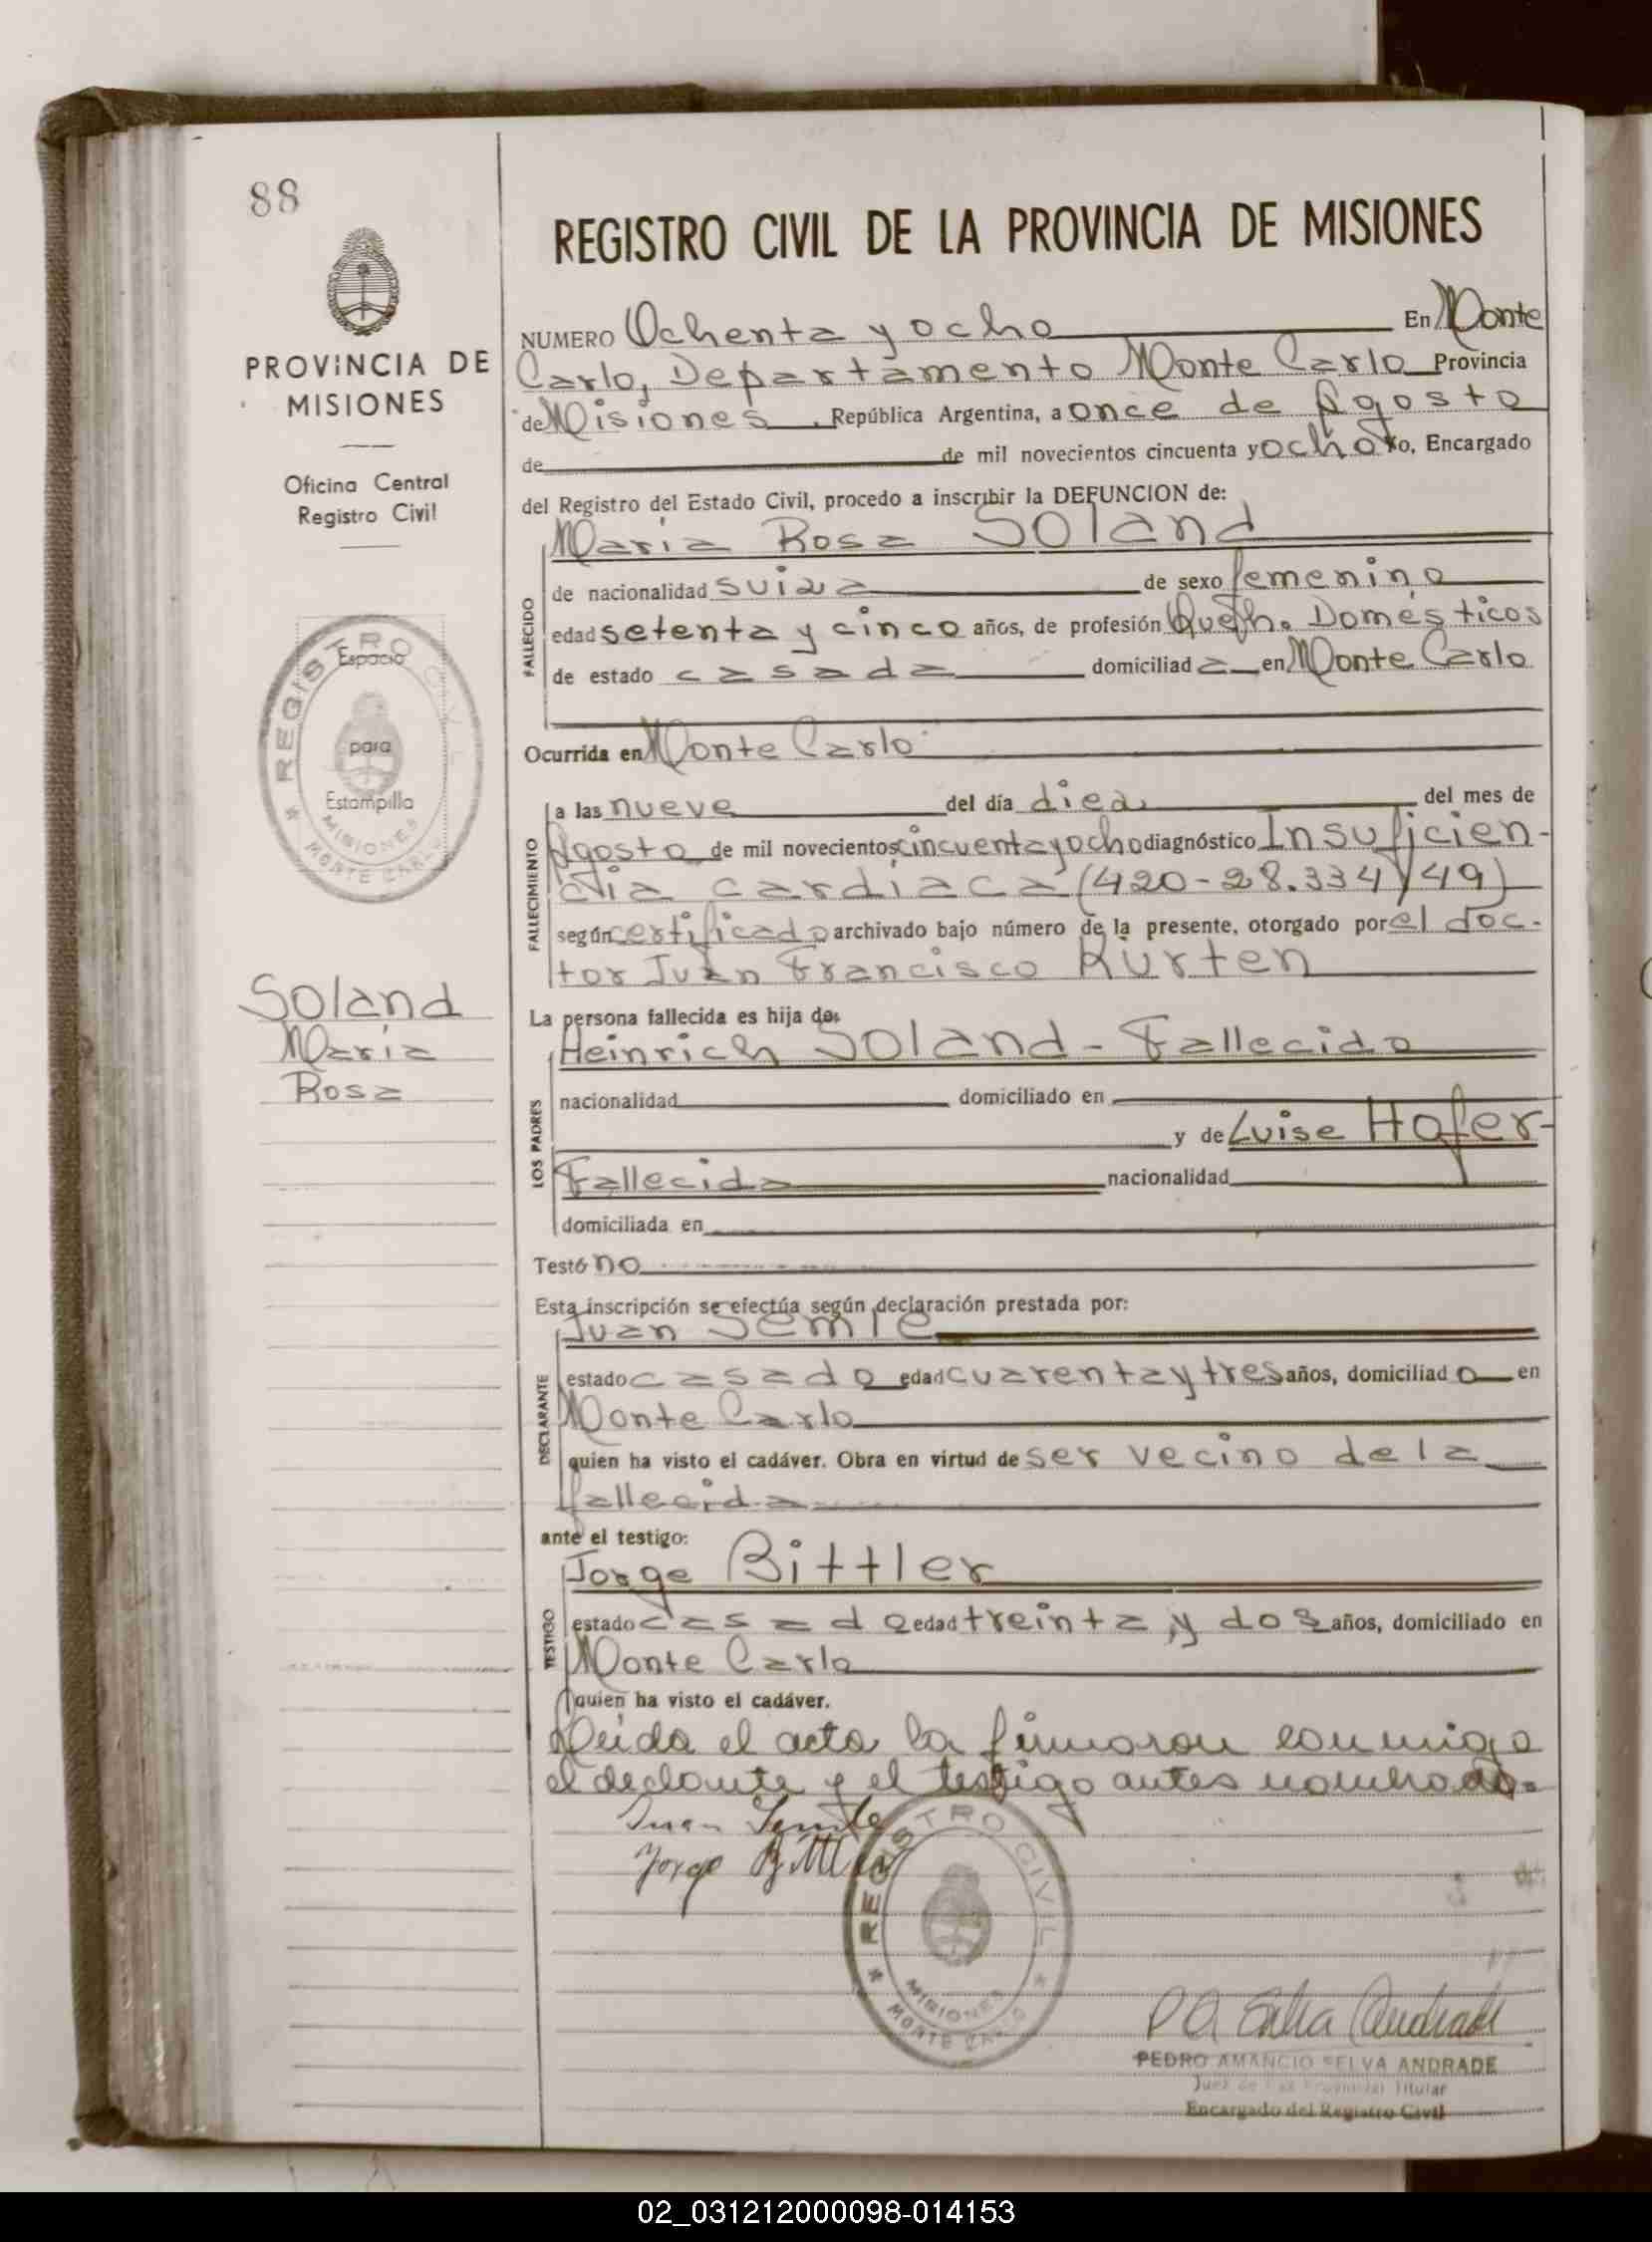 88
PROVINCIA DE
MISIONES
Oficina Central
Registro Civil
REGISTRO CIVIL
Espacio
para
Estampilla
MISIONES
MONTE CARLO
Soland
María
Rosa
REGISTRO CIVIL DE LA PROVINCIA DE MISIONES
NUMERO Ochenta y ocho En Monte
Carlo, Departamento Monte Carlo Provincia
de Misiones, República Argentina, a once de Agosto
de de mil novecientos cincuenta y ocho yo, Encargado
del Registro del Estado Civil, procedo a inscribir la DEFUNCION de:
María Rosa Soland
FALLECIDO
de nacionalidad suiza de sexo femenino
edad setenta y cinco años, de profesión Queh. Domésticos
de estado casada domiciliad a en Monte Carlo
Ocurrida en Monte Carlo
FALLECIMIENTO
a las nueve del día diez del mes de
Agosto de mil novecientos cincuenta y ocho diagnóstico Insuficien-
cia cardíaca (420-28.334/49)
según certificado archivado bajo número de la presente, otorgado por el doc-
tor Juan Francisco Kürten
La persona fallecida es hija de:
LOS PADRES
Heinrich Soland - Fallecido
nacionalidad domiciliado en
y de Luise Hofer-
Fallecida nacionalidad
domiciliada en
Testó no
Esta inscripción se efectúa según declaración prestada por:
DECLARANTE
Juan Semle
estado casado edad cuarenta y tres años, domiciliad o en
Monte Carlo
quien ha visto el cadáver. Obra en virtud de ser vecino de la
fallecida
ante el testigo:
TESTIGO
Jorge Bittler
estado casado edad treinta y dos años, domiciliado en
Monte Carlo
quien ha visto el cadáver.
Leida el acta la firmaron conmigo
el declante y el testigo antes nombrado.
Juan Semle
Jorge Bittler
REGISTRO CIVIL
MISIONES
MONTE CARLO
PEDRO AMANCIO SELVA ANDRADE
Juez de Paz Provincial Titular
Encargado del Registro Civil
02_031212000098-014153